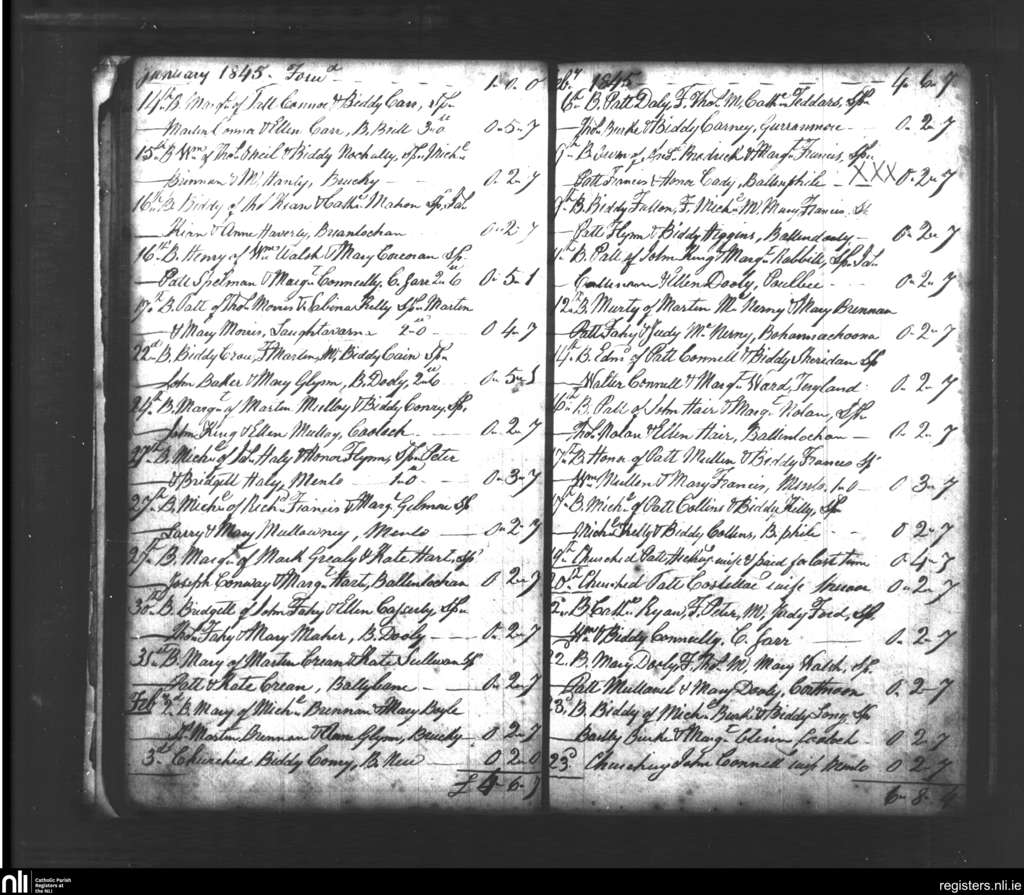 January 1845. Forwd 1.0.0
14th B. Margt of Patt Connor & Biddy Carr, Sps
Martin Connor & Ellen Carr, B. Britt 3=0 0.5.7
15th B Wm of Thos Neil & Biddy Nochally, Sps Michl
Brennan & M. Hanly, Brucky 0.2.7
16th B. Biddy of Thos Kean & Cathe Mahon Sps Jas
Kean & Anne Haverty, Brianlochan 0.2.7
16th B. Henry of Wm Walsh & Mary Corcoran Sps
Patt Spelman & Margt Connelly, C. Garr 2=6 0.5.1
19th B. Patt of Thos Morris & Sabina Kelly Sps Martin
& Mary Morris, 2=0 0.4.7
22d B. Biddy Crow, F. Martin, M. Biddy Cain Sps
John Baker & Mary Glynn, B. Dooly, 2=6 0.5.1
24th B. Margt of Martin Mulloy & Biddy Conry, Sps
John King & Ellen Mulloy, Cooloch 0.2.7
27th B. Michl of Jas Haly & Honor Flynn, Sps Peter
& Bridgett Haly, Menlo 1=0 0.3.7
27th B. Michl of Richd Francis & Margt Gilmore Sps
Larry & Mary Mullowney, Menlo 0.2.7
29th B. Margt of Mark Grealy & Kate Hart, Sps
Joseph Conway & Margt Hart, Ballinlochan 0.2.7
30th B. Bridgett of John Fahy & Ellen Caferty, Sps
Thos Fahy & Mary Maher, B. Dooly 0.2.7
31st B. Mary of Martin Crean & Kate Sullivan Sps
Patt & Kate Crean, Ballybane 0.2.7
Feb 2d B. Mary of Michl Brennan & Mary Boyle
Martin Brennan & Anne Glynn, Brucky 0.2.7
3d Churched Biddy Comey, B. New 0.2.0
£4.6.7
Feby 1845 4.6.7
6th B. Patt Daly, F. Thos M. Cathe Teddars, Sps
Thos Burke & Biddy Carney, Gurranmore 0.2.7
9th B. of Andw Brodrick & Margt Francis, Sps
Patt Francis & Honor Cady, Ballinphile XXX 0.2.7
9th B. Biddy Fallon, F. Michl M. Mary Francis, Sps
Patt Flynn & Biddy Higgins, Ballindooly 0.2.7
B. Patt of John King & Margt Rabbitt, Sps Jas
& Ellen Dooly, 0.2.7
12th B. Murty of Martin McNerny & Mary Brennan
Patt Fahy & Judy McNerny, Bohannachoona 0.2.7
14th B. Edmd of Patt Connell & Biddy Sheridan Sps
Walter Connell & Margt Ward, Tergland 0.2.7
16th B. Patt of John Hair & Margt Nolan, Sps
Thos Nolan & Ellen Hair, Ballinlochan 0.2.7
17th B. Honor of Patt Mullen & Biddy Francis Sps
Wm Mullen & Mary Francis, Menlo, 1=0 0.3.7
17th B. Michl of Patt Collins & Biddy Kelly, Sps
Michl Kelly & Biddy Collins, B. phile 0.2.7
19th Churched Patt Hickey wife & paid for last time 0.4.5
20th Churched Patt Costellae wife 0.2.7
B. Cathe Ryan, F. Peter, M. Judy Ford, Sps
Wm & Biddy Connelly, C. Garr 0.2.7
22d B. Mary Dooly F. Thos M. Mary Walsh, Sps
Patt & Mary Dooly, Cortnoon 0.2.7
23d B. Biddy of Michl Burke & Biddy Long, Sps
Burke & Margt Glenn Cooloch 0.2.7
23d Churching John Connell wife Menlo 0.2.7
6.8.4
nli Catholic Parish Registers at the NLI
registers.nli.ie